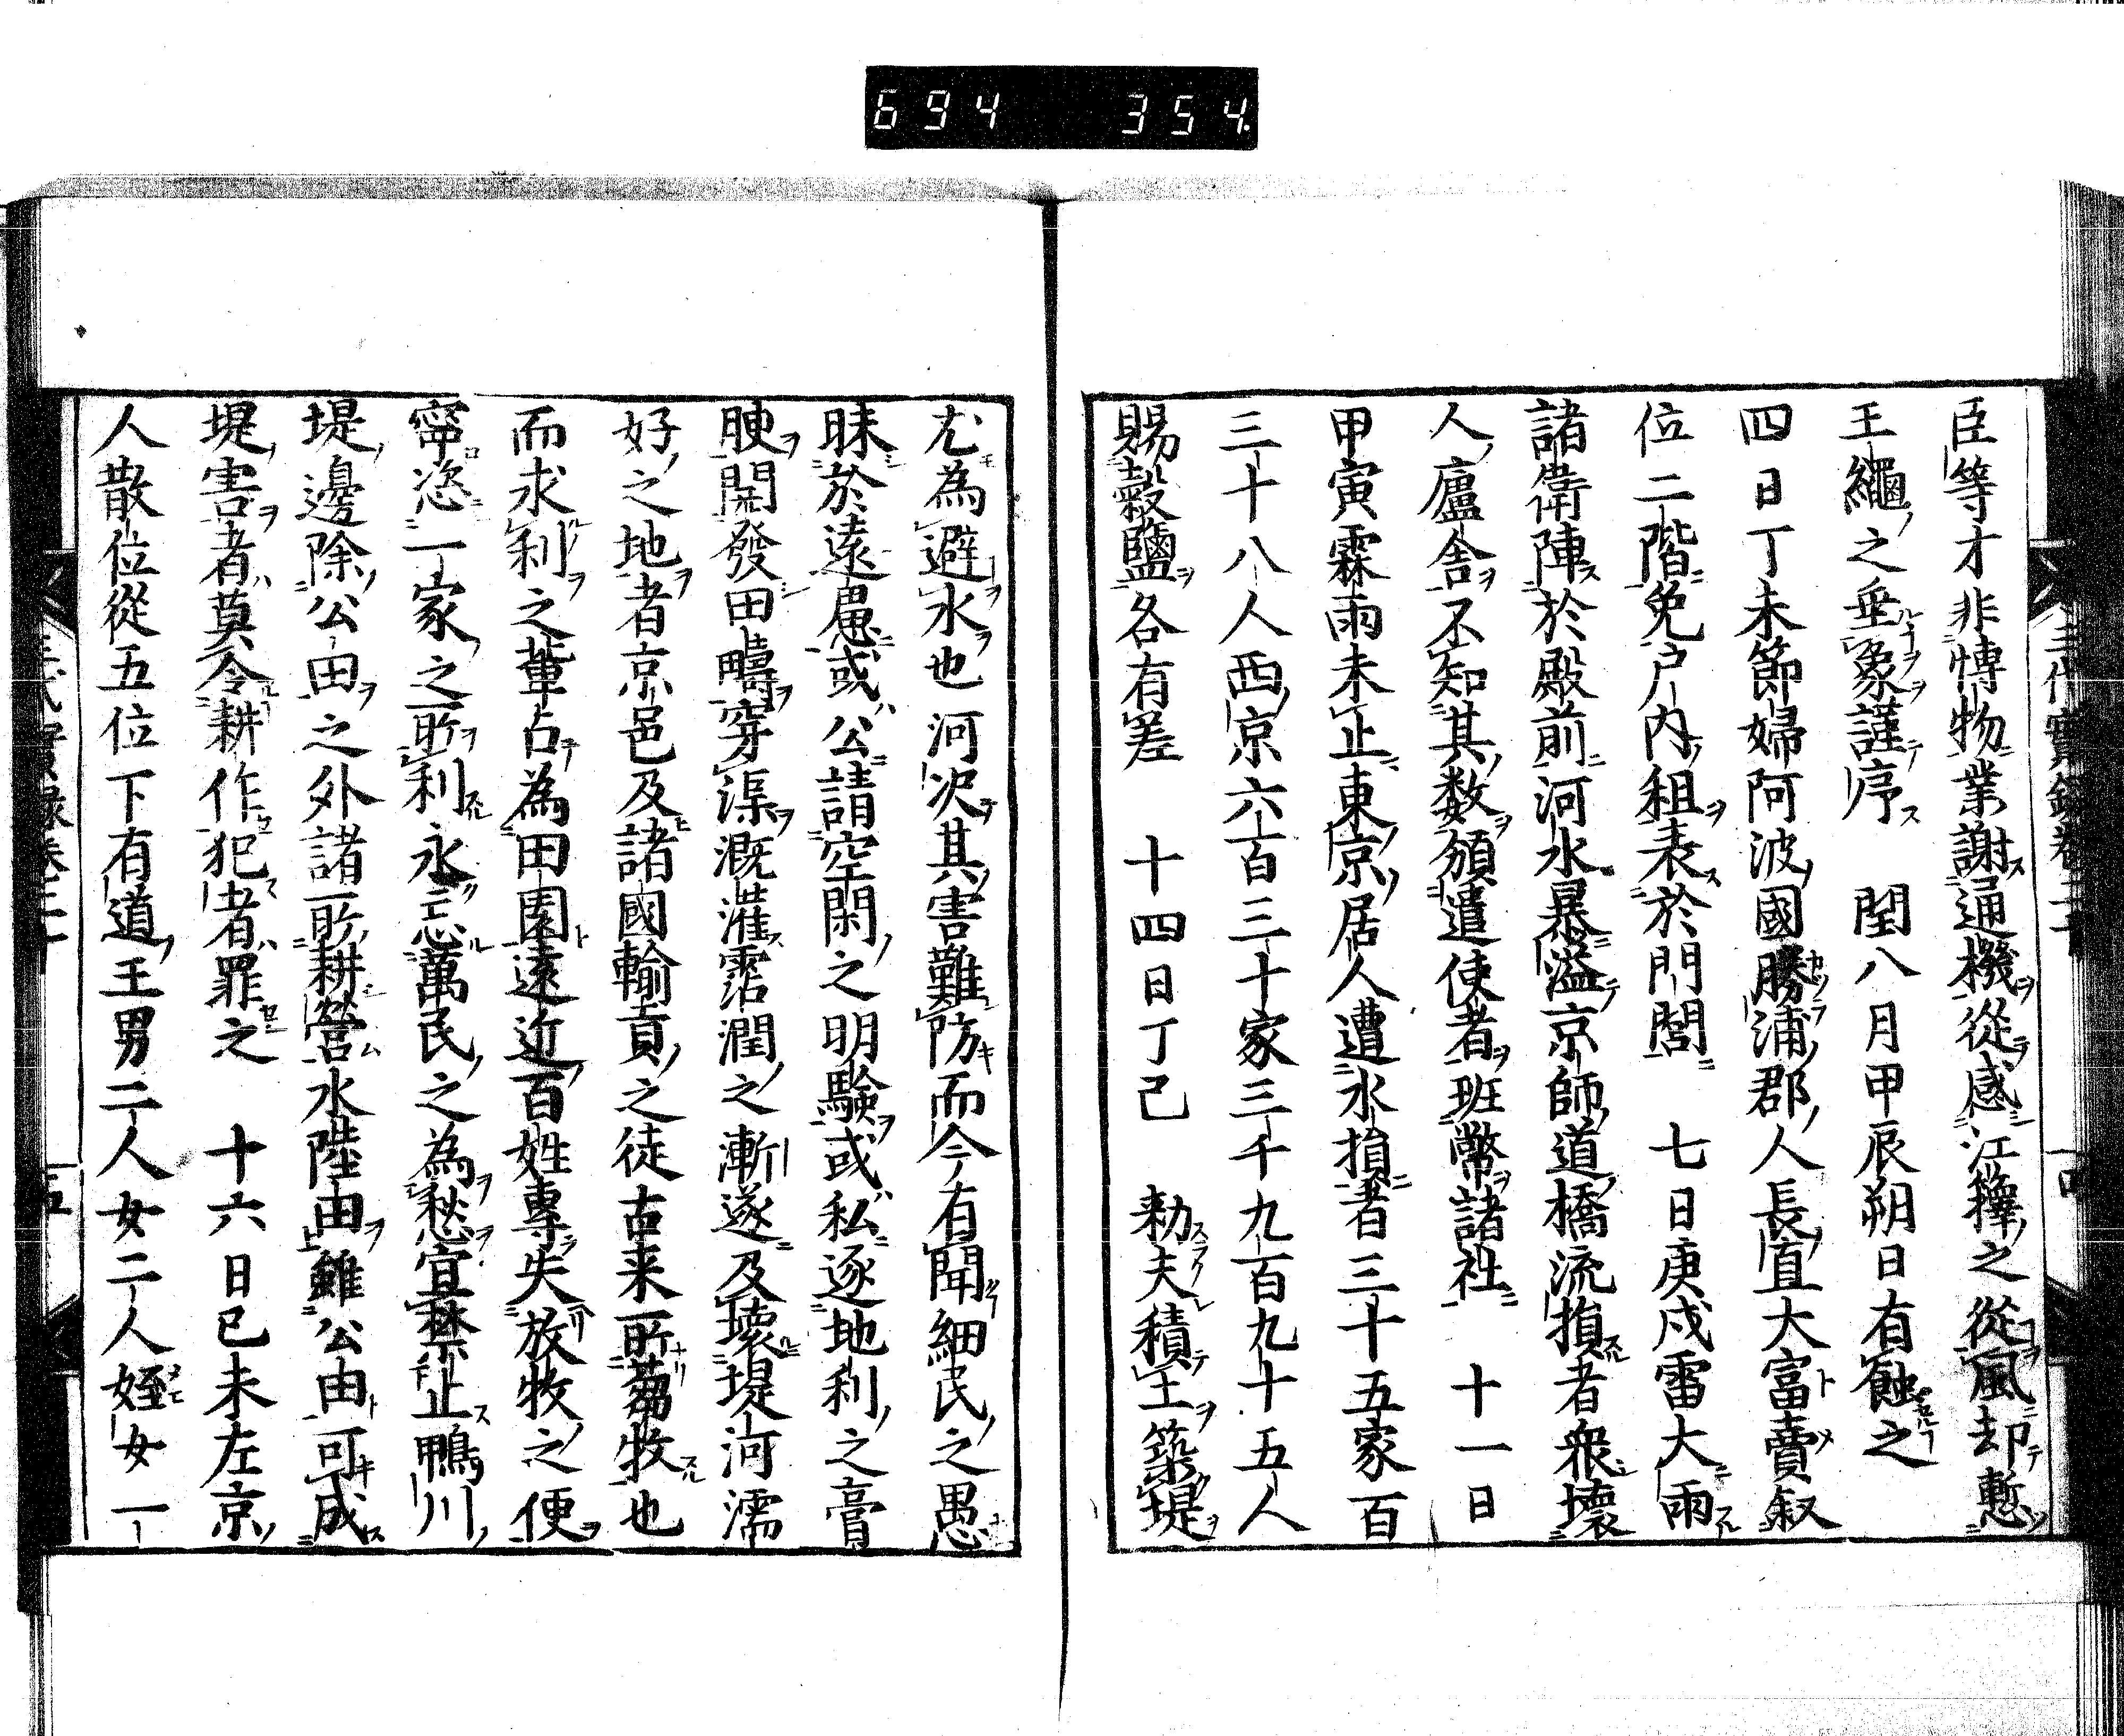 694 354.
臣等才非愽物業謝通機從感江籜之從風却慙
王繩之垂象謹序 閏八月甲辰朔日有蝕之
四日丁未節婦阿波國勝浦郡人長直大富賣叙
位二階免户内租表於門閭 七日庚戌雷大雨
諸衛陣於殿前河水暴溢京師道橋流損者衆壞
人廬舎不知其数頒遣使者班幣諸社 十一日
甲寅霖雨未止東京居人遭水損者三十五家百
三十八人西京六百三十家三千九百九十五人
賜穀鹽各有差 十四日丁己 勑夫積土築堤
尤為避水也河决其害難防而今有聞細民之愚
眛於遠慮或公請空閑之明驗或私逐地利之膏
腴開發田疇穿渠漑灌霑潤之漸遂及壞堤河濡
好之地者京邑及諸國輸貢之徒古来所蒭牧也
而求利之輩占為田園遠近百姓專失放牧之便
寧恣一家之所利永忘萬民之為愁宜禁止鴨川
堤邊除公田之外諸所耕營水陸田雖公田可成
堤害者莫令耕作犯者罪之 十六日已未左京
人散位從五位下有道王男二人女二人姪女一